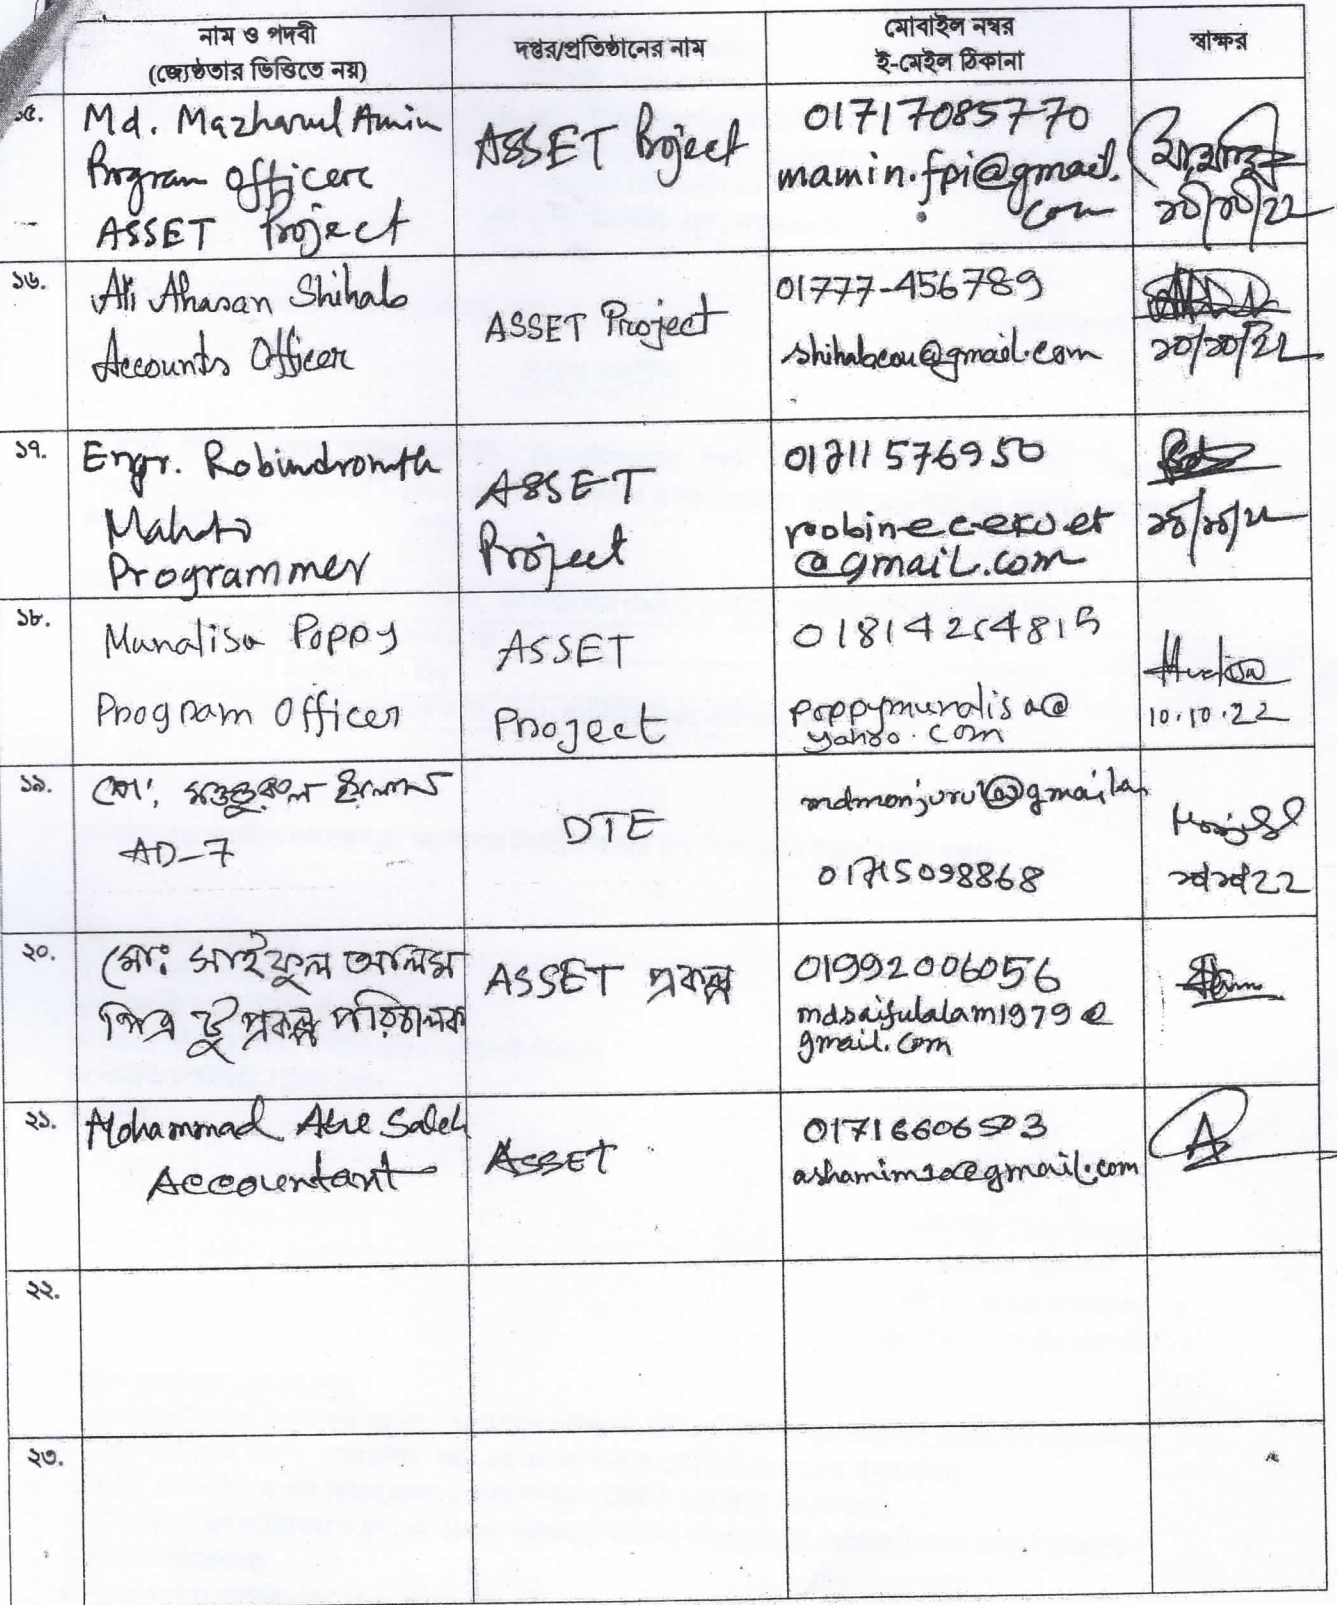 নাম ও পদবী
(জ্যেষ্ঠতার ভিত্তিতে নয়)
দপ্তর/প্রতিষ্ঠানের নাম
মোবাইল নম্বর
ই-মেইল ঠিকানা
স্বাক্ষর
১৫.
Md. Mazharul Amin
Program Officer
ASSET Project
ASSET Project
01717085770
mamin.fpi@gmail.
com
১০/১০/২২
১৬.
Ali Ahasan Shihab
Accounts Officer
ASSET Project
01777-456789
shihabcou@gmail.com
১০/১০/২২
১৭.
Engr. Robindronath
Mahato
Programmer
ASSET
Project
01711576950
@gmail.com
১০/১০/২২
১৮.
Munalisa Poppy
Program Officer
ASSET
Project
poppymunalisa@
yahoo.com
10.10.22
১৯.
মো: মঞ্জুরুল ইসলাম
AD-7
DTE
01715098868
২০.
মো: সাইফুল আলিম
টু প্রকল্প পরিচালক
ASSET প্রকল্প
01992006056
mdsaifulalam1979@
gmail.com
২১.
Mohammad Abu Saleh
Accountant
ASSET
২২.
২৩.